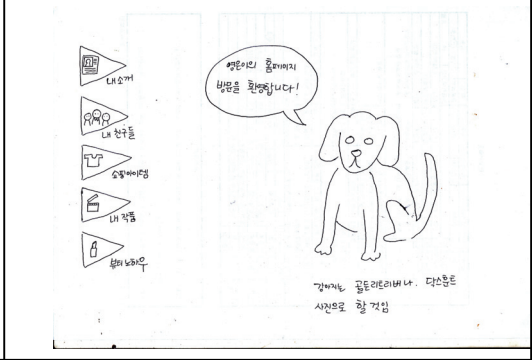 내소개
내 친구들
쇼핑아이템
내 작품
뷰티 노하우
영은이의 홈페이지
방문을 환영합니다!
강아지는 골든리트리버나. 닥스훈트
사진으로 할 것임